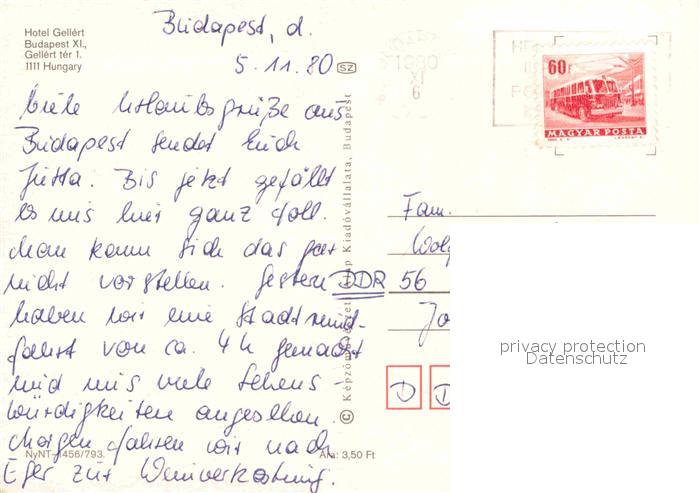 Hotel Gellért
Budapest XI.,
Gellért tér 1.
1111 Hungary
Budapest, d.
5.11.80
SZ
Viele Urlaubsgrüße aus
Budapest sendet Euch
Jutta. Bis jetzt gefällt
es uns hier ganz toll.
Man kann sich das gar
nicht vorstellen. Gestern
haben wir eine Stadtrund-
fahrt von ca. 4 h gemacht
und uns viele Sehens-
würdigkeiten angesehen.
Morgen fahren wir nach
Eger zur Weinverkostung.
NyNT-1456/793.
Ára: 3,50 Ft
Kiadóvállalata, Budapest
1980
XI
6
60f
MAGYAR POSTA
Fam.
DDR 56
D D
privacy protection
Datenschutz